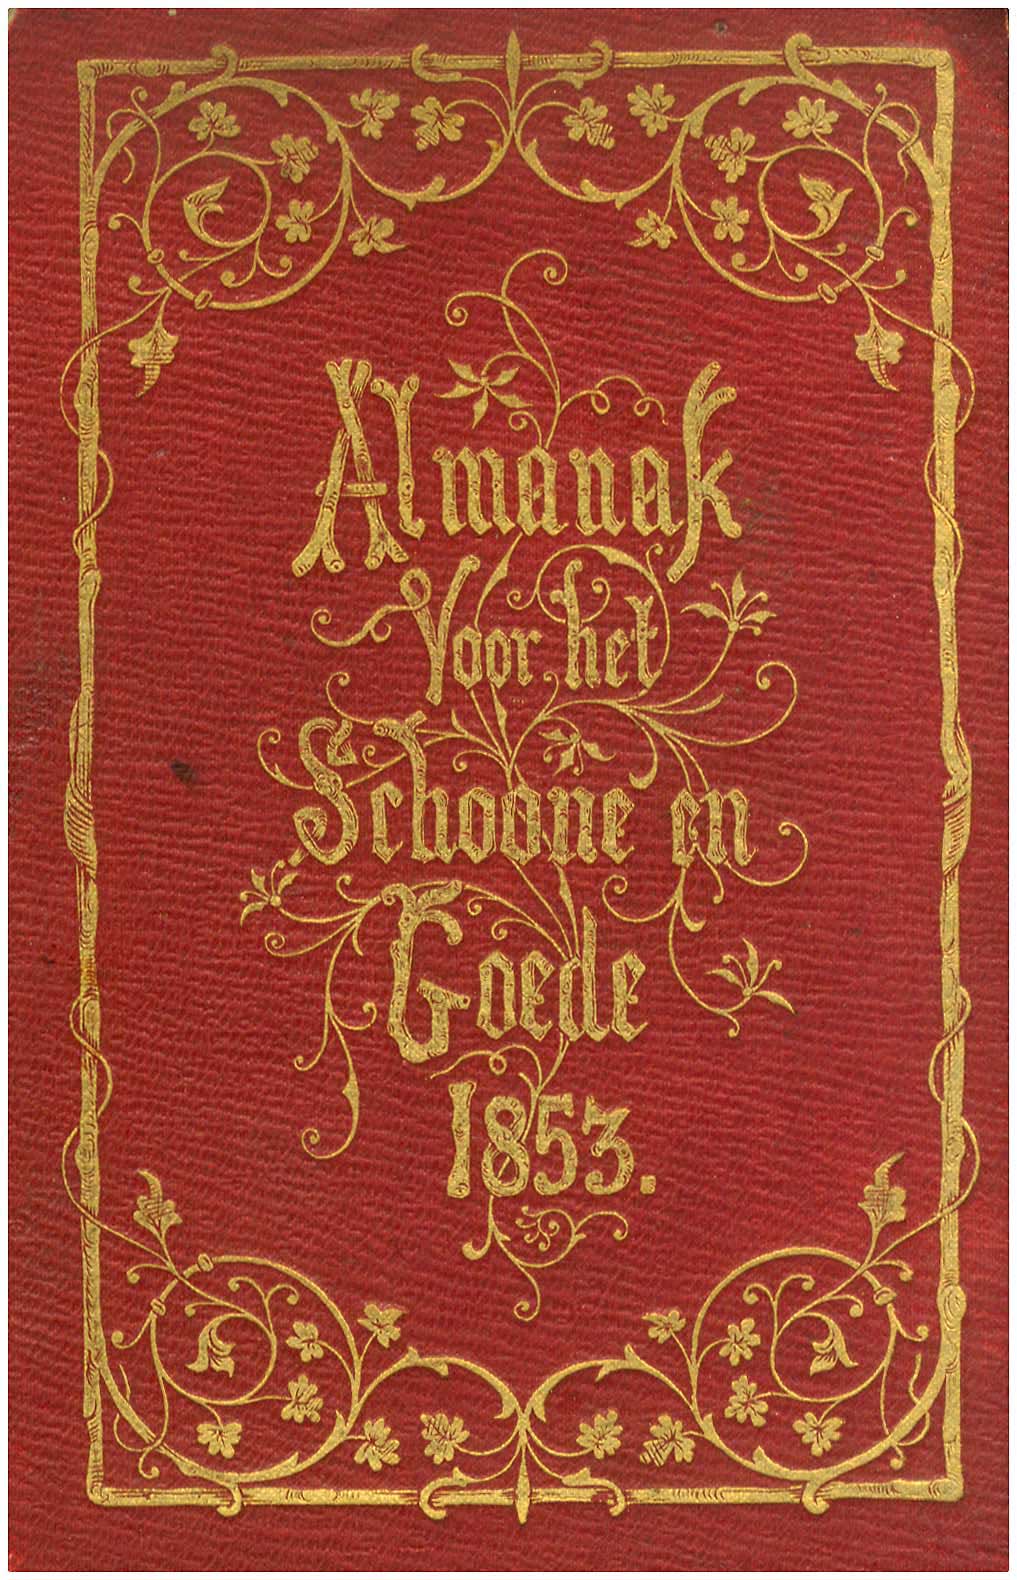 Almanak
Voor het
Schoone en
Goede
1853.